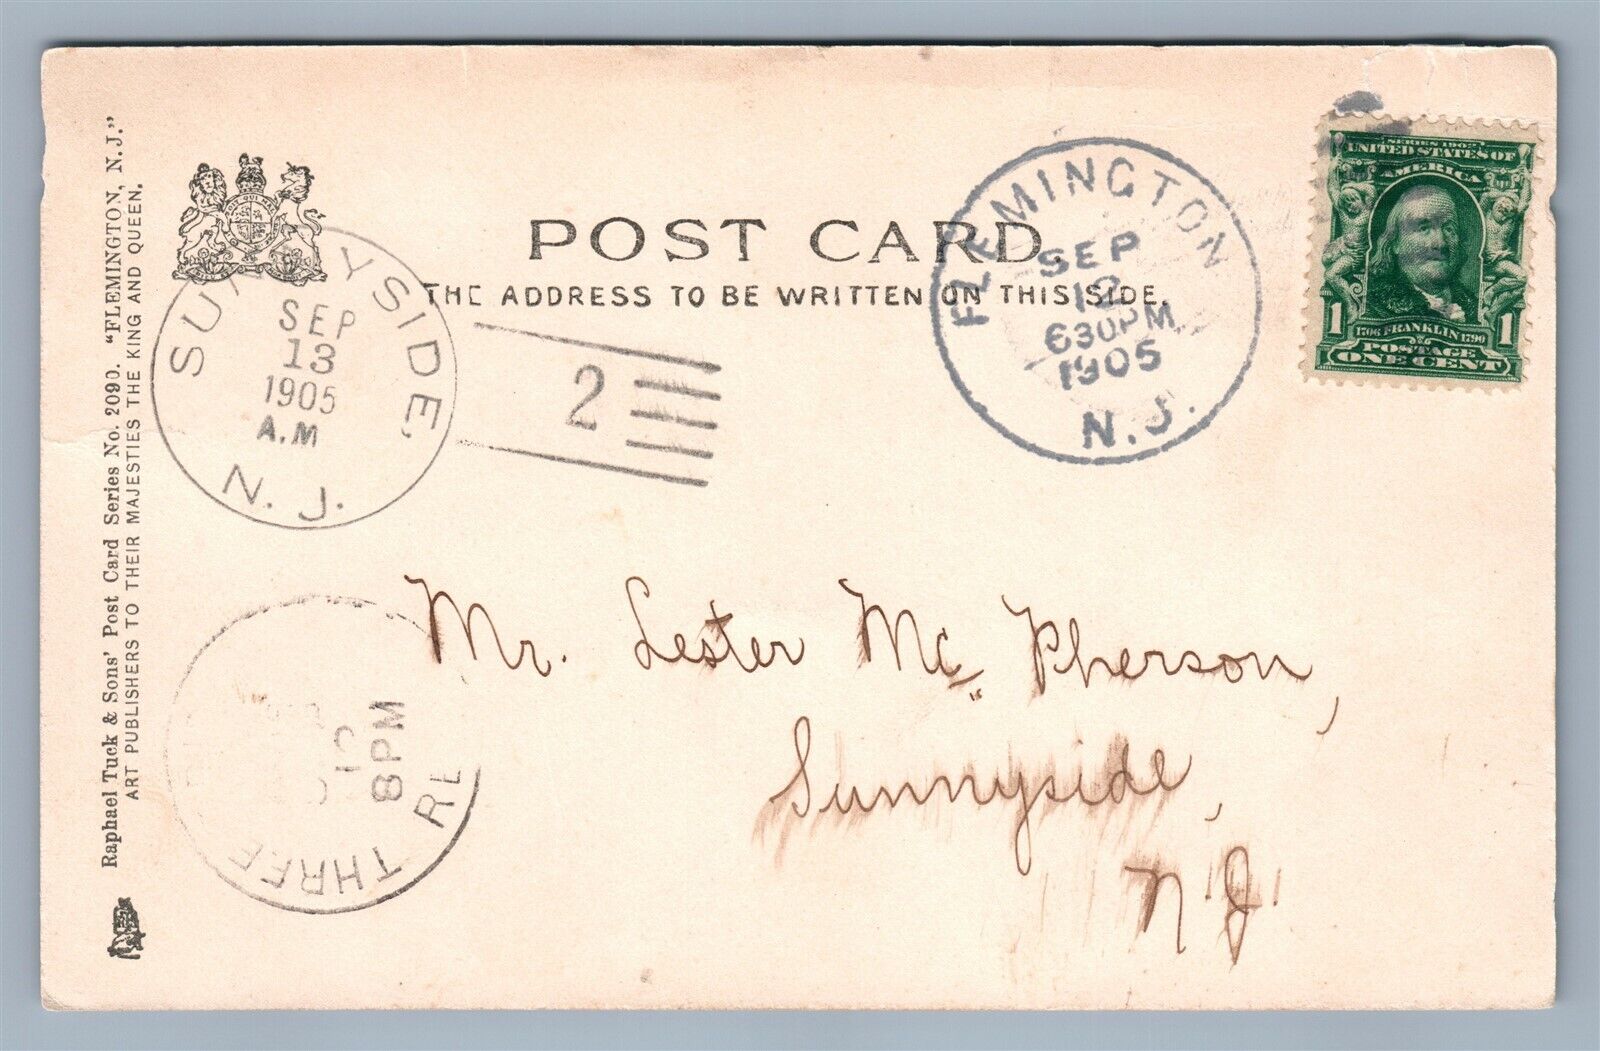 Raphael Tuck & Sons' Post Card Series No. 2090. "FLEMINGTON, N. J."
ART PUBLISHERS TO THEIR MAJESTIES THE KING AND QUEEN.
POST CARD.
THE ADDRESS TO BE WRITTEN ON THIS SIDE.
FLEMINGTON
SEP
12
630PM
1905
N. J.
SERIES 1902
UNITED STATES OF
AMERICA
1 1706 FRANKLIN 1790 1
POSTAGE
ONE CENT
SEP
13
1905
A.M
N. J.
2
Mr. Lester Mc Pherson,
Sunnyside,
N. J.
8PM
THREE